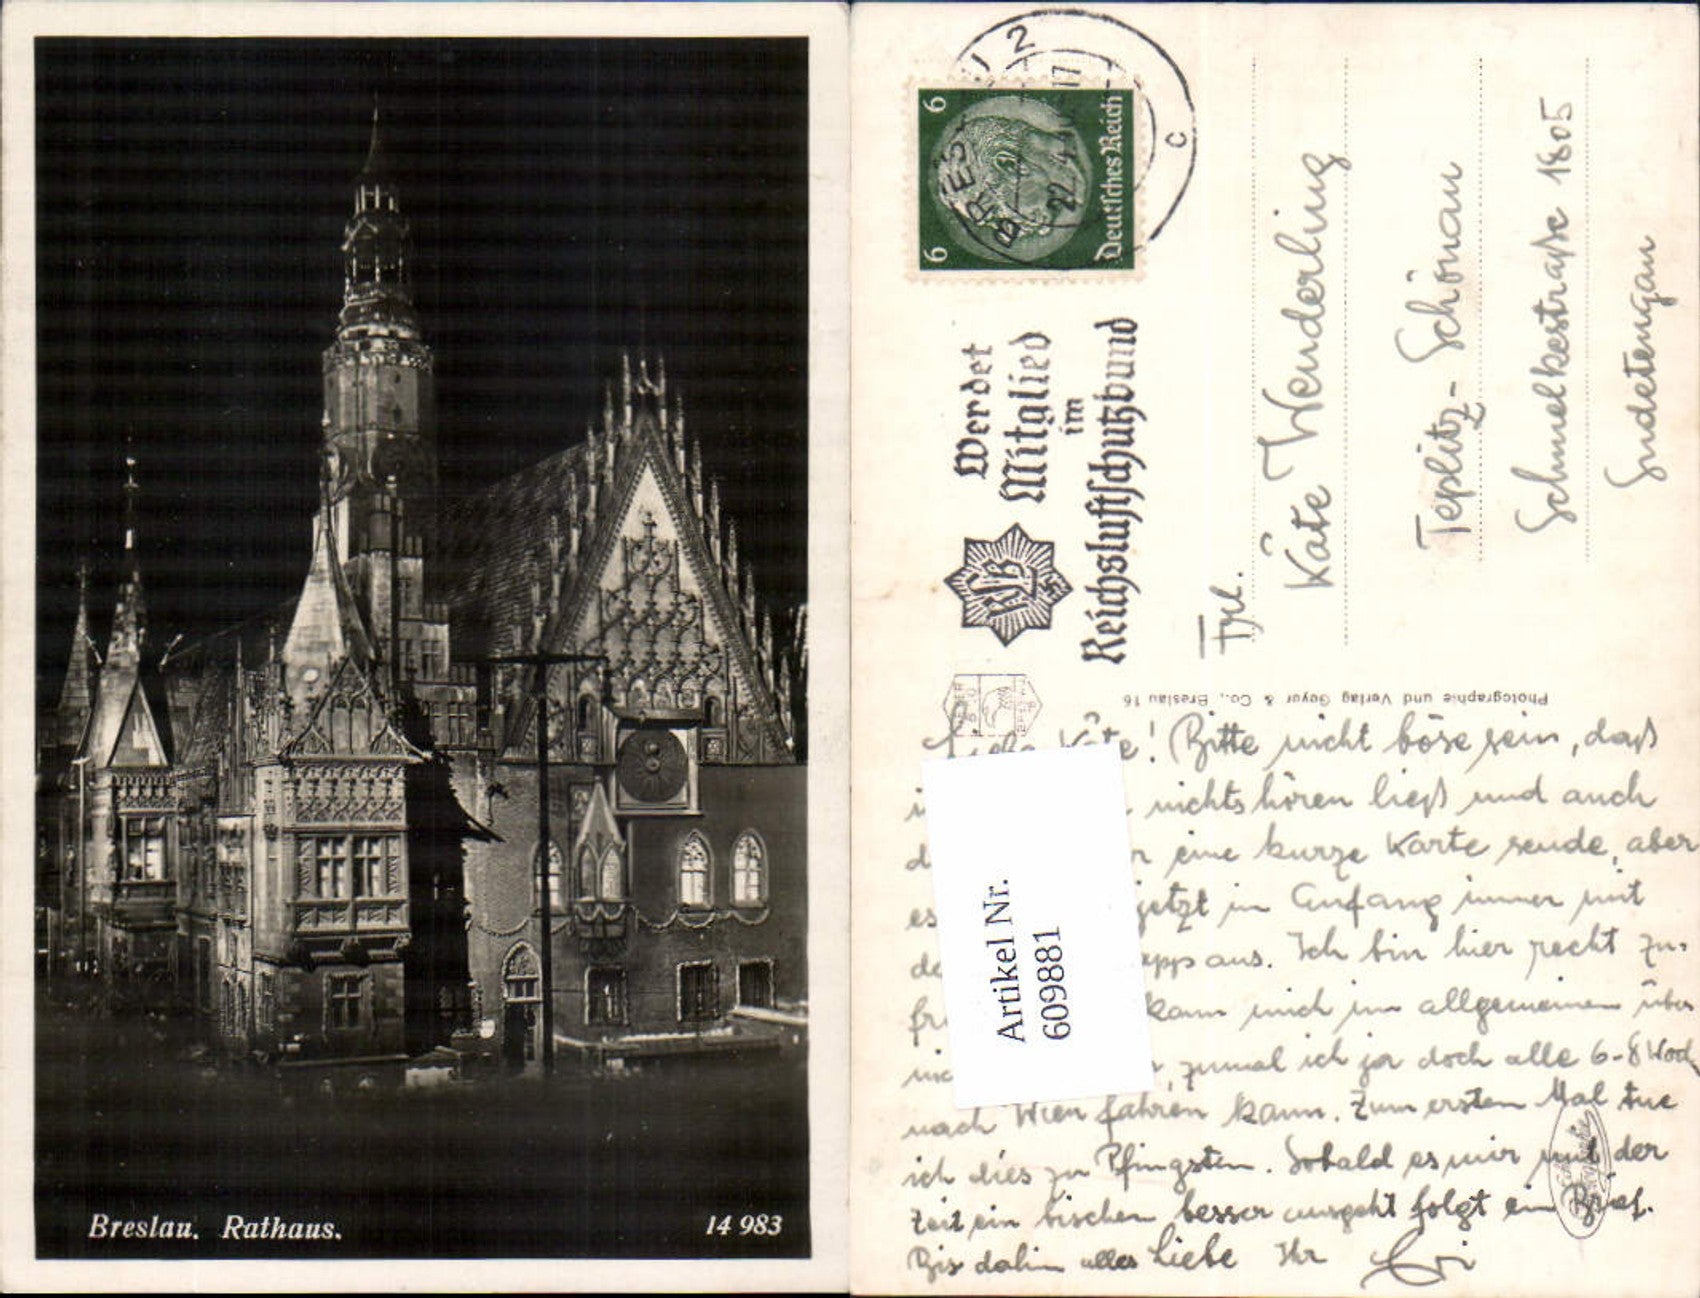 Breslau. Rathaus.
14 983
6
6
Deutsches Reich
BRES
2
22.4.
17
c
Werdet
Mitglied
im
Reichsluftschutzbund
RLB
Frl.
Käte Wenderling
Teplitz-Schönau
Schmelkestraße 1805
Sudetengau
Photographie und Verlag Geyer & Co., Breslau 16
Artikel Nr.
609881
Liebe Käte! Bitte nicht böse sein, daß
nichts hören ließ und auch
eine kurze Karte sende, aber
es jetzt im Anfang immer mit
aus. Ich bin hier recht zu-
kann mich im allgemeinen über
zumal ich ja doch alle 6-8 Woch
nach Wien fahren kann. Zum ersten Mal tue
ich dies zu Pfingsten. Sobald es mir mit der
Zeit ein bischen besser ausgeht folgt ein Brief.
Bis dahin alles Liebe Ihr